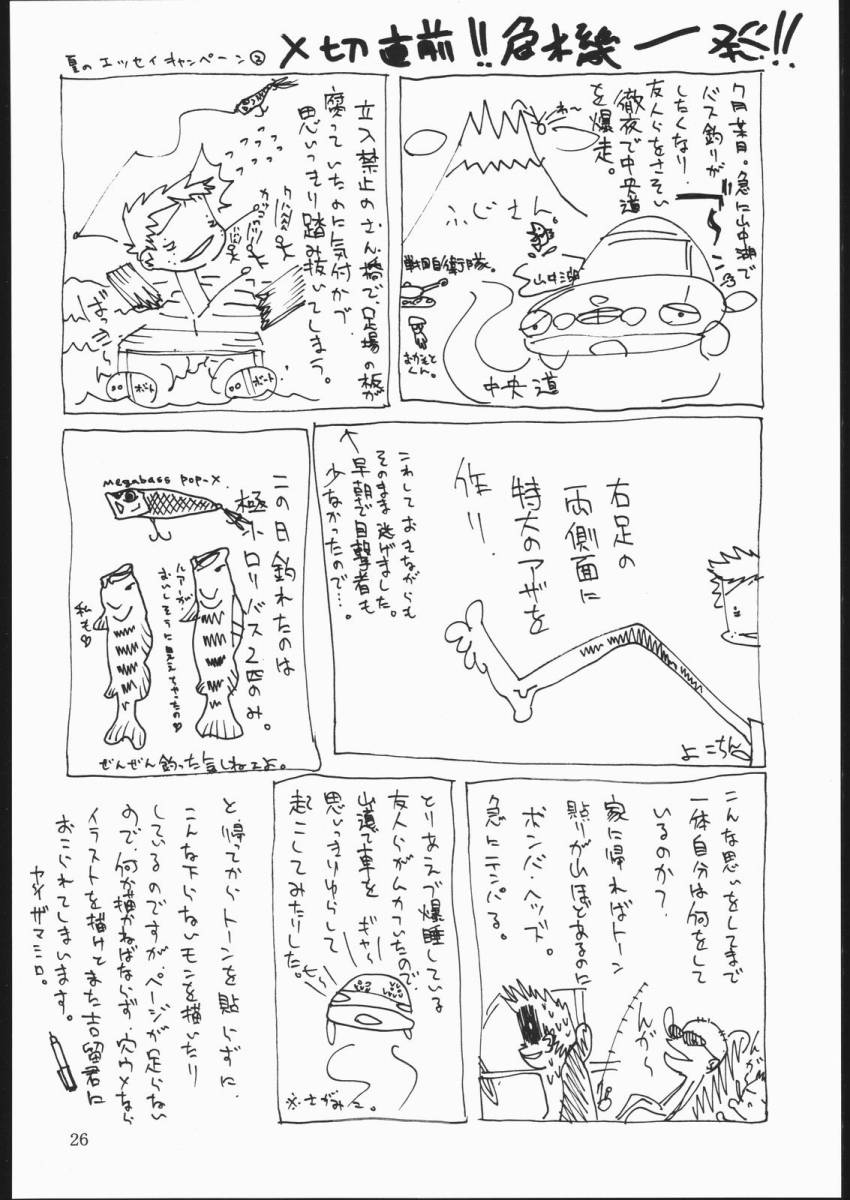 夏のエッセイキャンペーン②
〆切直前!!危機一発!!
7月某日。急に山中湖で
バス釣りが
したくなり、
友人らをさそい
徹夜で中央道
を爆走。
わ〜
ふじさん
山中湖
戦国自衛隊。
おかもとくん。
中央道
立入禁止のさん橋で、足場の板が
腐っていたのに気付かず
思いっきり踏み抜いてしまう。
ボート
ボート
右足の
両側面に
特大のアザを
作り、
こわしておきながらも
そのまま逃げました。
早朝で目撃者も
少なかったので…。
よこちん
この日釣れたのは
極小ロリバス2匹のみ。
megabass pop-x.
ルアーが
おいしそうに見えちゃったの♡
私も♡
ぜんぜん釣った気しねーよ。
こんな思いをしてまで
一体自分は何をして
いるのか？
家に帰ればトーン
貼りが山ほどあるのに
ボンバヘッズ。
急にテンパる。
んが〜
とりあえず爆睡している
友人らがムカついたので
山道で車を
思いっきりゆらして
起こしてみたりした。
ギャ〜
※さがみこ。
と、帰ってからトーンを貼らずに、
こんな下らないモンを描いたり
しているのですが、ページが足らない
ので、何か描かねばならず、穴ウメなら
イラストを描けとまた吉留君に
おこられてしまいます。
ヤジザマシロ。
26